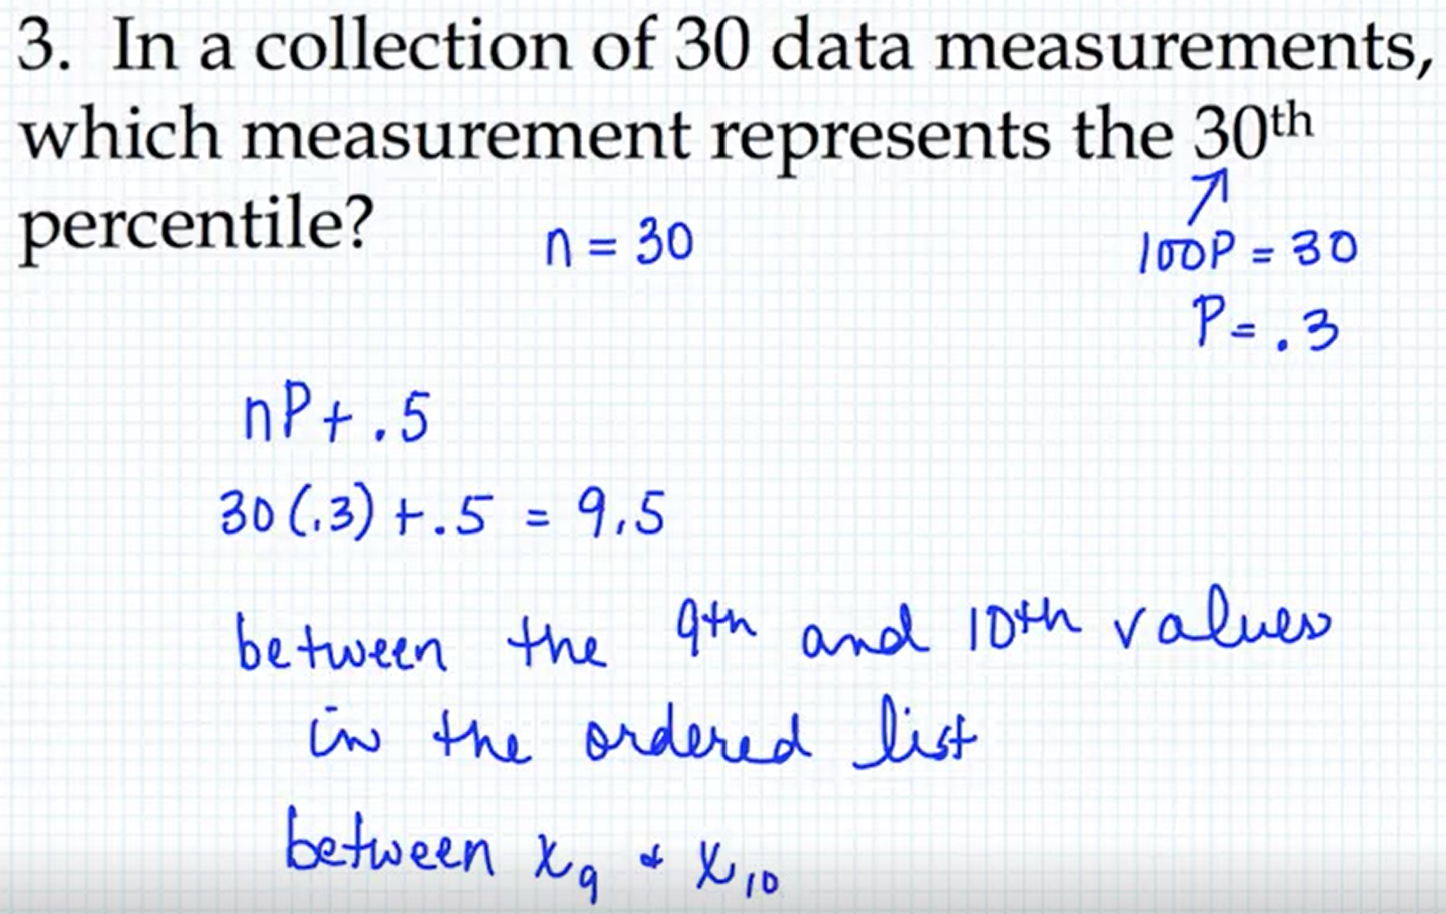 3. In a collection of 30 data measurements,
which measurement represents the 30th
percentile?
n = 30
100P = 30
P = .3
nP + .5
30(.3) + .5 = 9.5
between the 9th and 10th values
in the ordered list
between x₉ & x₁₀